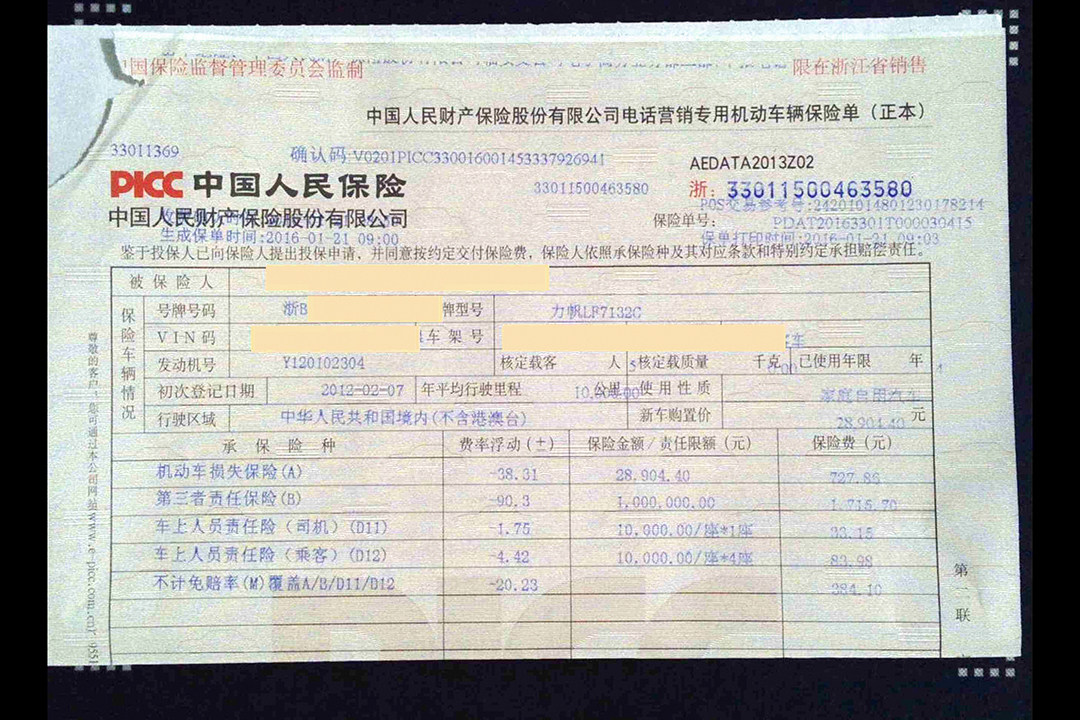 中国保险监督管理委员会监制
限在浙江省销售
中国人民财产保险股份有限公司电话营销专用机动车辆保险单（正本）
33011369
确认码:V0201PICC330016001453337926941
AEDATA2013Z02
PICC 中国人民保险
33011500463580
浙：33011500463580
POS交易参考号:24201914801230178214
中国人民财产保险股份有限公司
保险单号：
PDAT20163301T000030415
生成保单时间:2016-01-21 09:00
保单打印时间:2016-01-21 09:03
鉴于投保人已向保险人提出投保申请，并同意按约定交付保险费，保险人依照承保险种及其对应条款和特别约定承担赔偿责任。
被保险人
保险车辆情况
号牌号码 浙B 牌型号 力帆LF7132C
VIN码 车架号 客车
发动机号 Y120102304 核定载客 5 人 核定载质量 千克 已使用年限 4 年
初次登记日期 2012-02-07 年平均行驶里程 公里 使用性质 家庭自用汽车
行驶区域 中华人民共和国境内(不含港澳台) 新车购置价 28,904.40 元
承保险种 费率浮动(±) 保险金额/责任限额(元) 保险费(元)
机动车损失保险(A) -38.31 28,904.40 727.86
第三者责任保险(B) -90.3 1,000,000.00 1,715.70
车上人员责任险（司机）(D11) -1.75 10,000.00/座*1座 33.15
车上人员责任险（乘客）(D12) -4.42 10,000.00/座*4座 83.98
不计免赔率(M)覆盖A/B/D11/D12 -20.23 384.10
第一联
尊敬的客户：您可通过本公司网站www.e-picc.com.cn